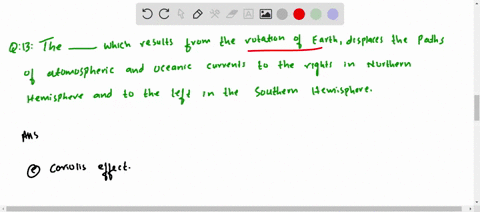 Q:13: The ____ which results from the rotation of Earth, displaces the paths
of atomospheric and oceanic currents to the rights in Northern
Hemisphere and to the left in the Southern Hemisphere.
Ans
(e) Coriolis effect.